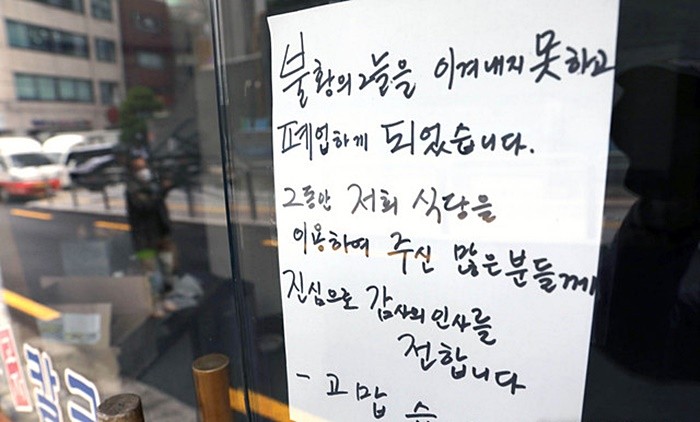 불황의 그늘을 이겨내지 못하고
폐업하게 되었습니다.
그동안 저희 식당을
이용하여 주신 많은분들께
진심으로 감사의 인사를
전합니다
- 고맙습